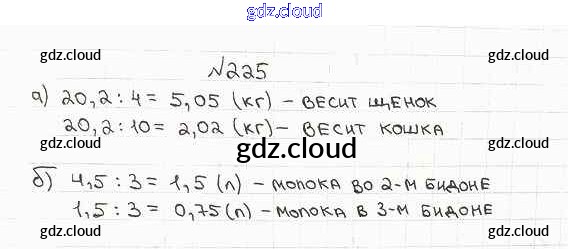 gdz.cloud
gdz.cloud gdz.cloud
№225
а) 20,2 : 4 = 5,05 (кг) – весит щенок
20,2 : 10 = 2,02 (кг) – весит кошка
gdz.cloud
б) 4,5 : 3 = 1,5 (л) – молока во 2-м бидоне
1,5 : 3 = 0,75 (л) – молока в 3-м бидоне
gdz.cloud gdz.cloud